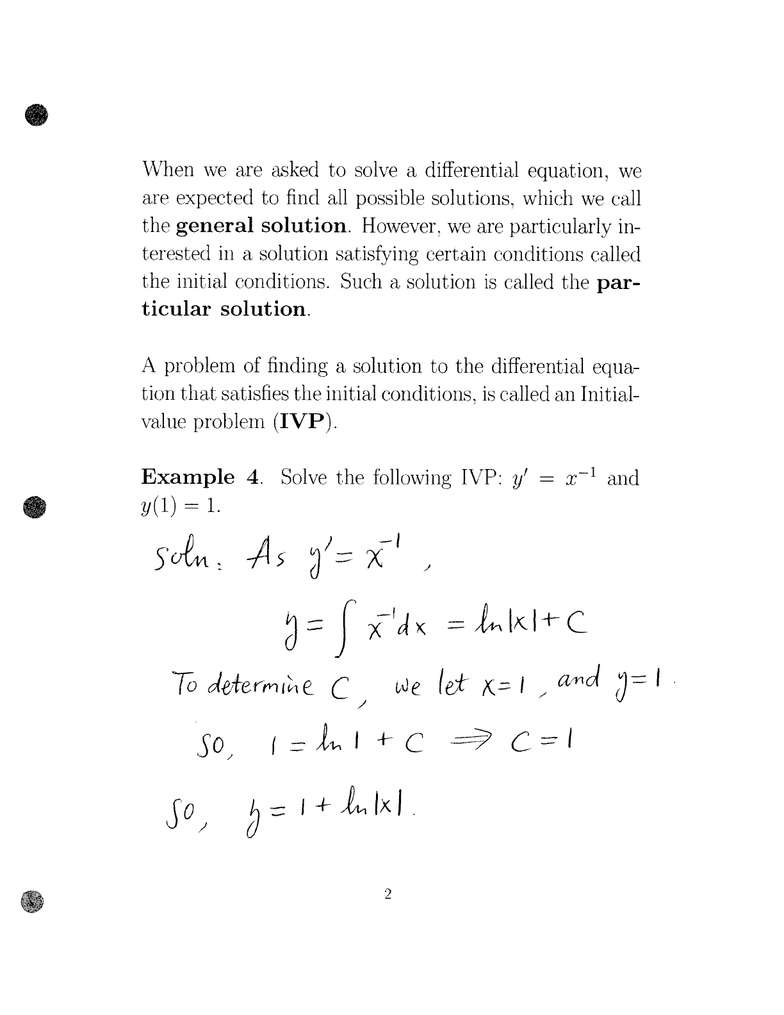 When we are asked to solve a differential equation, we
are expected to find all possible solutions, which we call
the general solution. However, we are particularly in-
terested in a solution satisfying certain conditions called
the initial conditions. Such a solution is called the par-
ticular solution.
A problem of finding a solution to the differential equa-
tion that satisfies the initial conditions, is called an Initial-
value problem (IVP).
Example 4. Solve the following IVP: y′ = x⁻¹ and
y(1) = 1.
Soln: As y′ = x⁻¹,
y = ∫ x⁻¹dx = ln|x| + C
To determine C, we let x=1, and y=1.
So, 1 = ln 1 + C ⟹ C = 1
So, y = 1 + ln|x|.
2